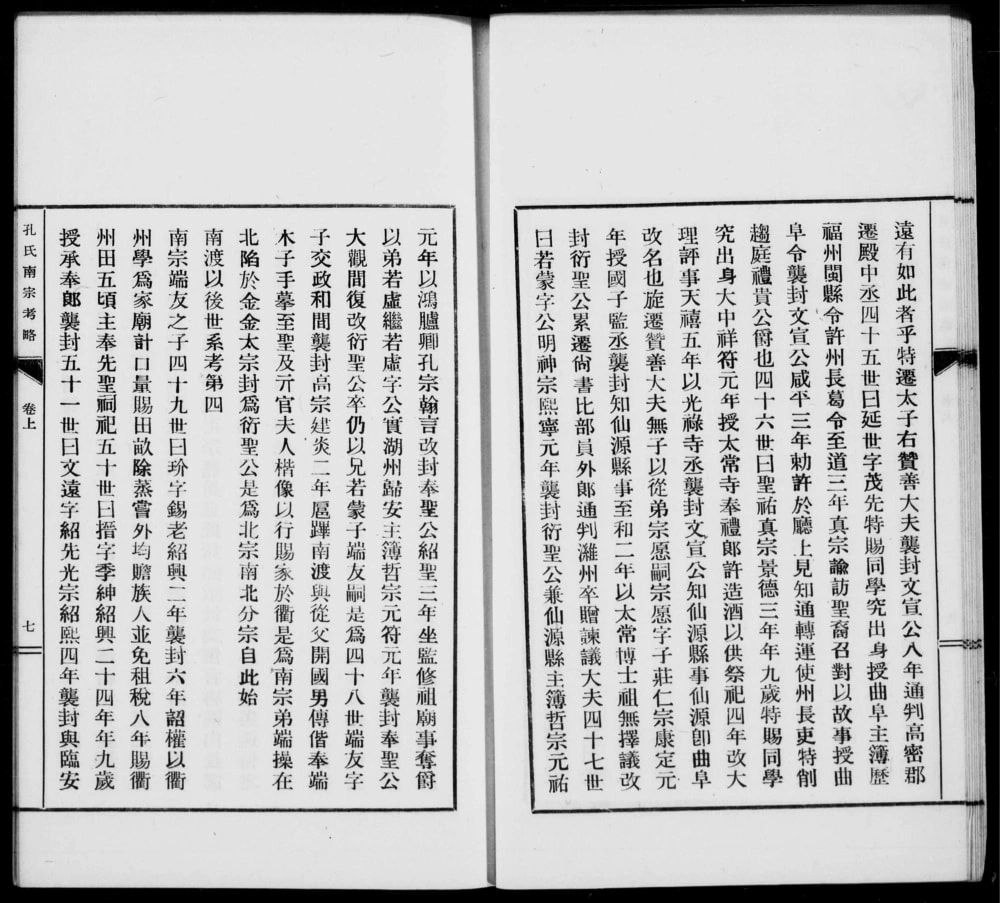 遠有如此者乎特遷太子右贊善大夫襲封文宣公八年通判高密郡
遷殿中丞四十五世曰延世字茂先特賜同學究出身授曲阜主簿歷
福州閩縣令許州長葛令至道三年真宗諭訪聖裔召對以故事授曲
阜令襲封文宣公咸平三年勅許於廳上見知通轉運使州長吏特創
趨庭禮貴公爵也四十六世曰聖祐真宗景德三年年九歲特賜同學
究出身大中祥符元年授太常寺奉禮郎許造酒以供祭祀四年改大
理評事天禧五年以光祿寺丞襲封文宣公知仙源縣事仙源卽曲阜
改名也旋遷贊善大夫無子以從弟宗愿嗣宗愿字子莊仁宗康定元
年授國子監丞襲封知仙源縣事至和二年以太常博士祖無擇議改
封衍聖公累遷尙書比部員外郎通判濰州卒贈諫議大夫四十七世
曰若蒙字公明神宗熙寧元年襲封衍聖公兼仙源縣主簿哲宗元祐
元年以鴻臚卿孔宗翰言改封奉聖公紹聖三年坐監修祖廟事奪爵
以弟若虛繼若虛字公實湖州歸安主簿哲宗元符元年襲封奉聖公
大觀間復改衍聖公卒仍以兄若蒙子端友嗣是爲四十八世端友字
子交政和間襲封高宗建炎二年扈蹕南渡與從父開國男傳偕奉端
木子手摹至聖及亓官夫人楷像以行賜家於衢是爲南宗弟端操在
北陷於金金太宗封爲衍聖公是爲北宗南北分宗自此始
南渡以後世系考第四
南宗端友之子四十九世曰玠字錫老紹興二年襲封六年詔權以衢
州學爲家廟計口量賜田畝除蒸嘗外均贍族人並免租稅八年賜衢
州田五頃主奉先聖祠祀五十世曰搢字季紳紹興二十四年年九歲
授承奉郎襲封五十一世曰文遠字紹先光宗紹熙四年襲封與臨安
孔氏南宗考略
卷上
七